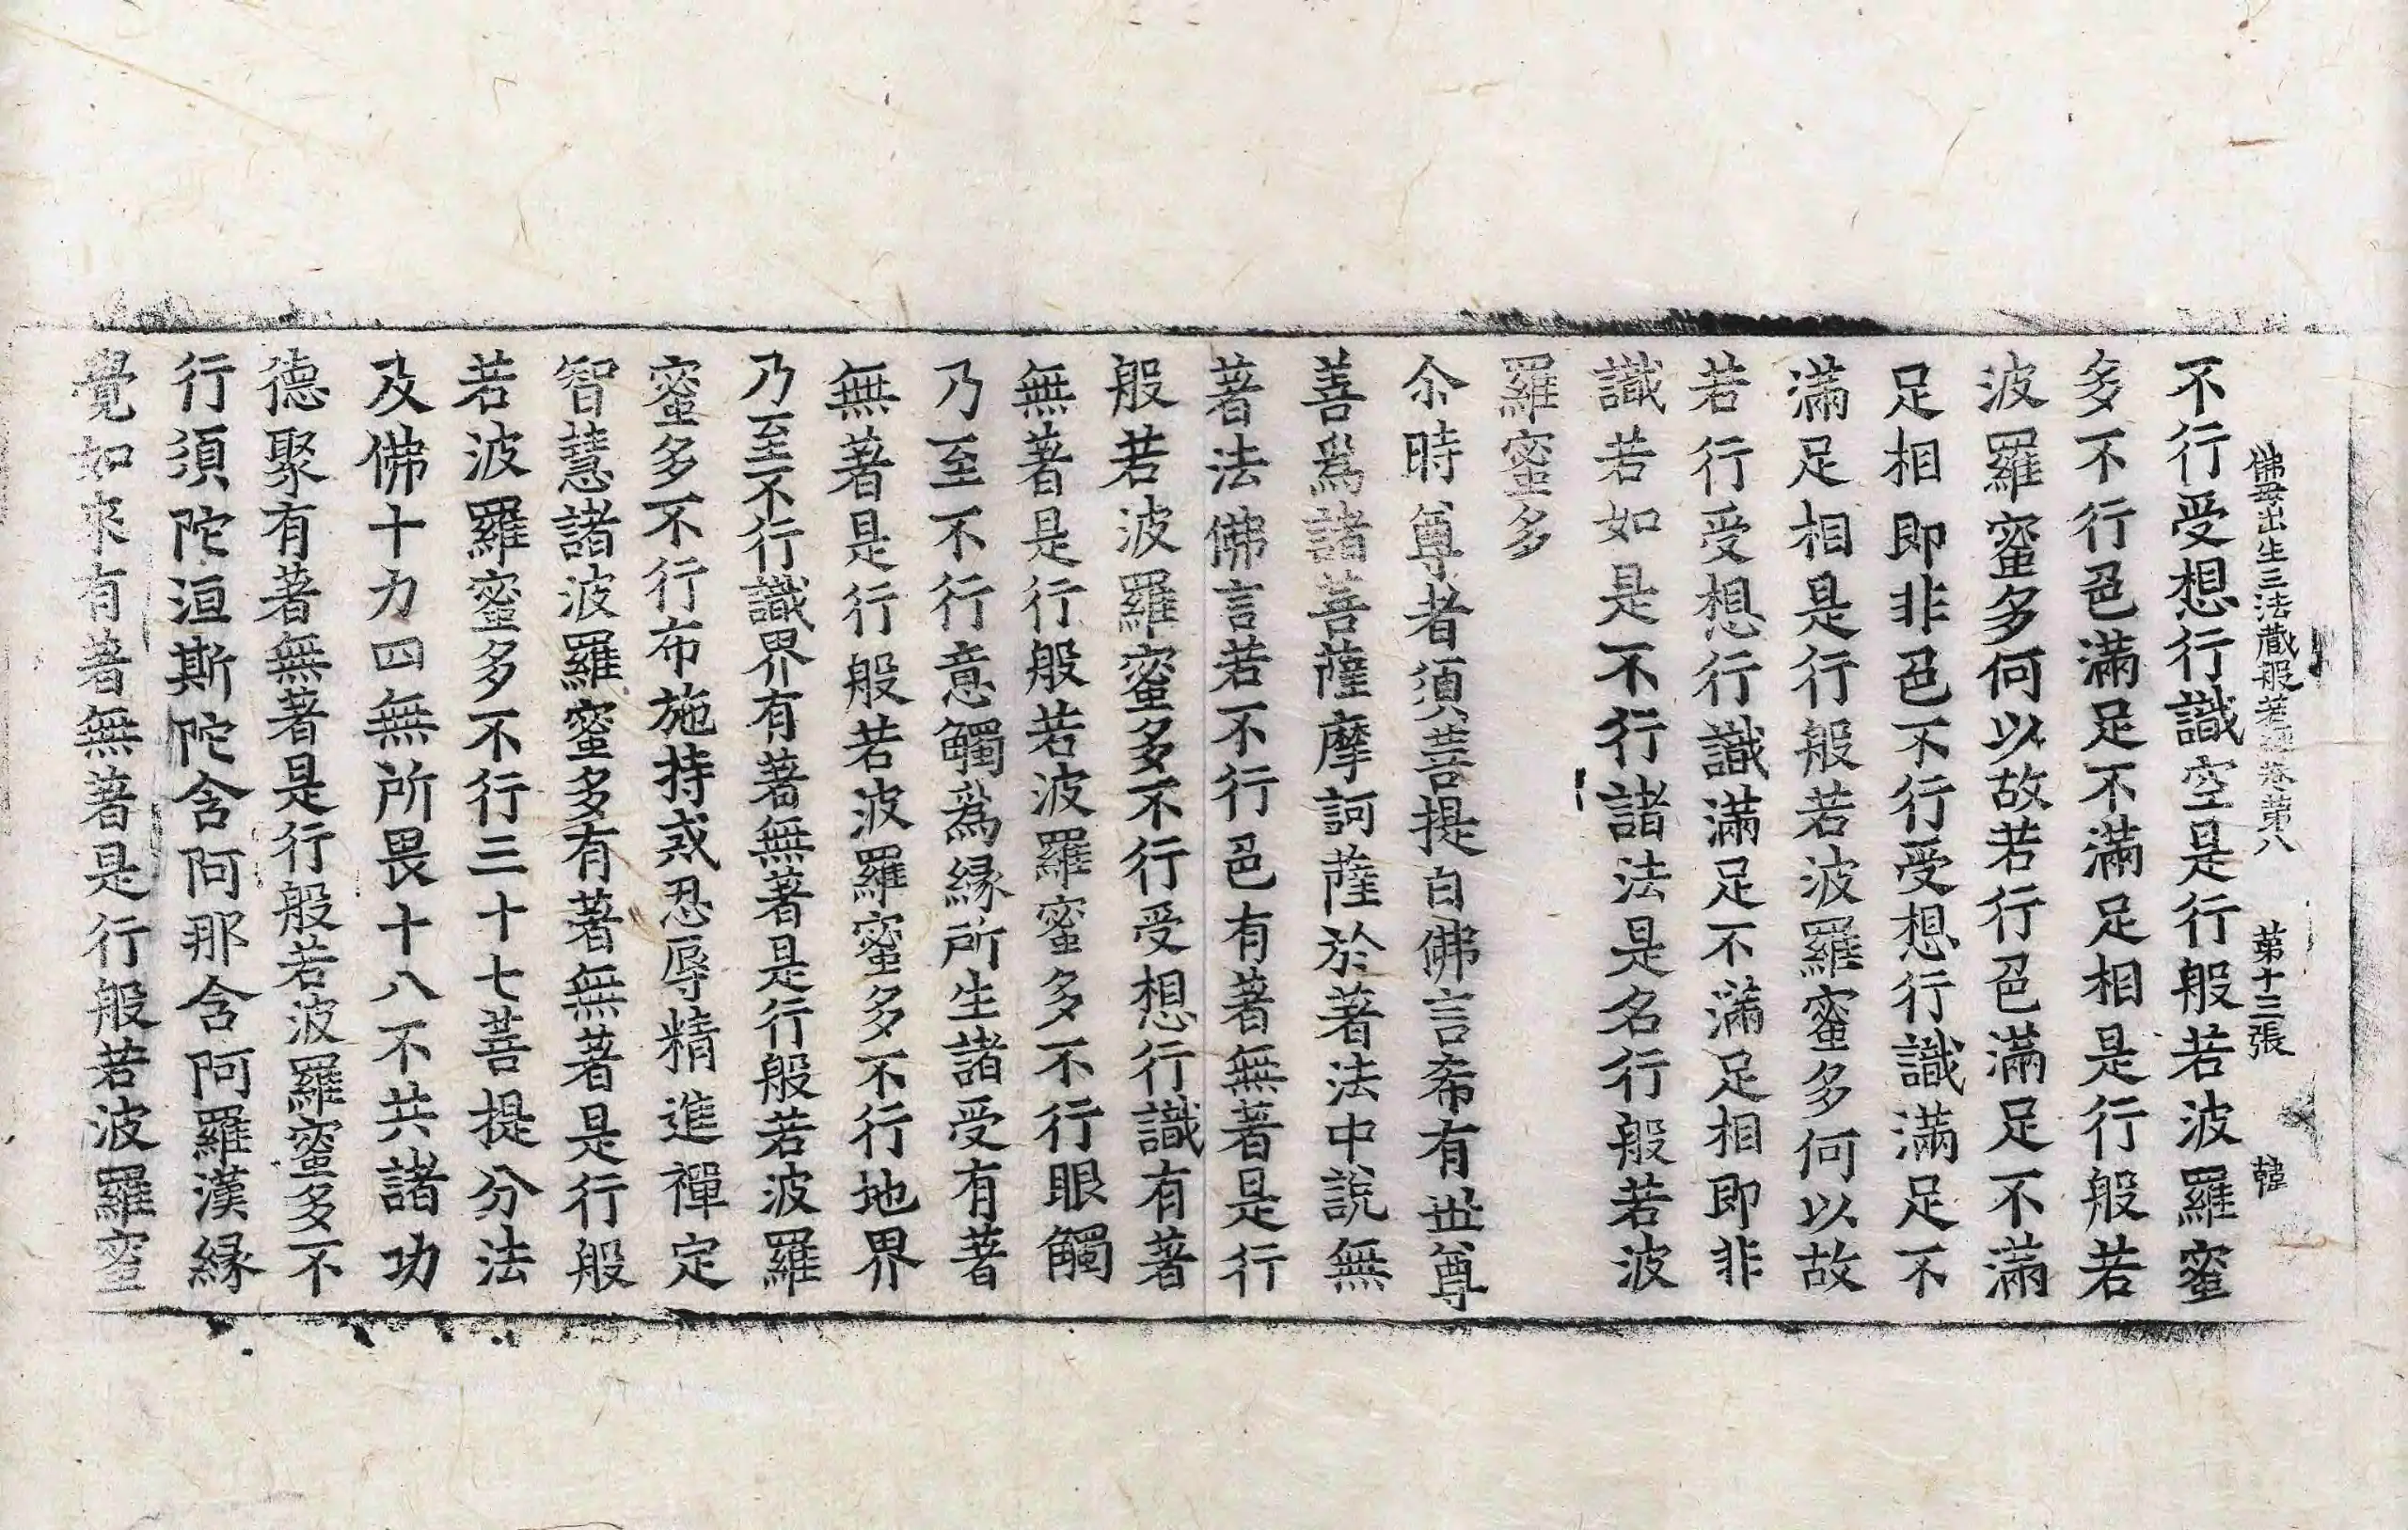 佛母出生三法藏般若經卷第八 第十三張 韓
不行受想行識空是行般若波羅蜜
多不行色滿足不滿足相是行般若
波羅蜜多何以故若行色滿足不滿
足相即非色不行受想行識滿足不
滿足相是行般若波羅蜜多何以故
若行受想行識滿足不滿足相即非
識若如是不行諸法是名行般若波
羅蜜多
尒時尊者須菩提白佛言希有世尊
善爲諸菩薩摩訶薩於著法中說無
著法佛言若不行色有著無著是行
般若波羅蜜多不行受想行識有著
無著是行般若波羅蜜多不行眼觸
乃至不行意觸爲緣所生諸受有著
無著是行般若波羅蜜多不行地界
乃至不行識界有著無著是行般若波羅
蜜多不行布施持戒忍辱精進禪定
智慧諸波羅蜜多有著無著是行般
若波羅蜜多不行三十七菩提分法
及佛十力四無所畏十八不共諸功
德聚有著無著是行般若波羅蜜多不
行須陀洹斯陀含阿那含阿羅漢緣
覺如來有著無著是行般若波羅蜜